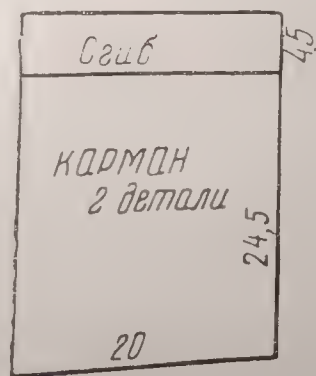 Сгиб
4,5
карман
2 детали
24,5
20